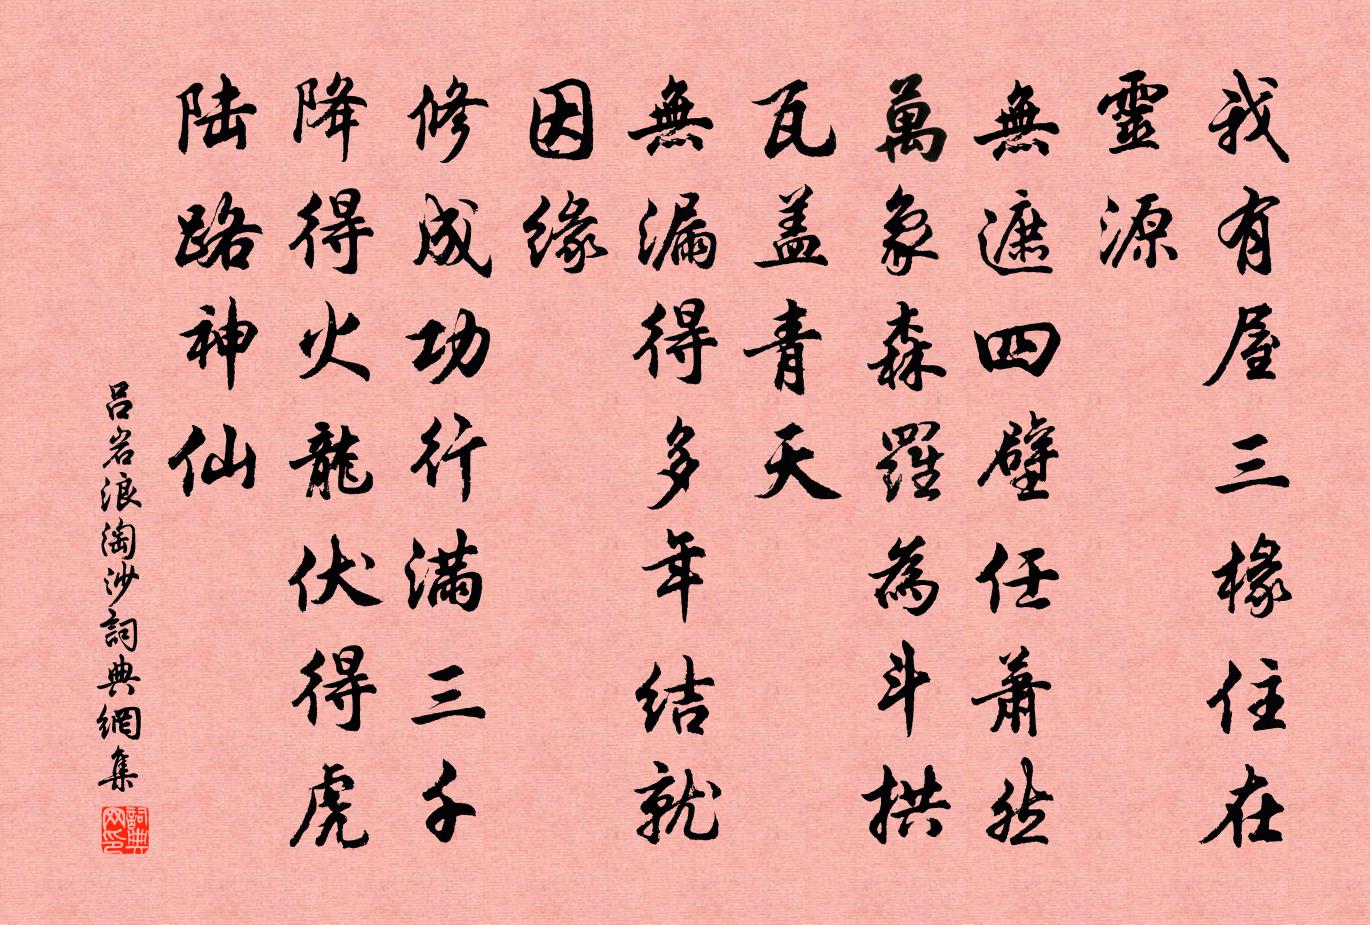 我有屋三椽住在
靈源
無遮四壁任蕭然
萬象森羅為斗拱
瓦盖青天
無漏得多年结就
因缘
修成功行满三千
降得火龍伏得虎
陆路神仙
吕岩浪淘沙詞典網集
詞典网印